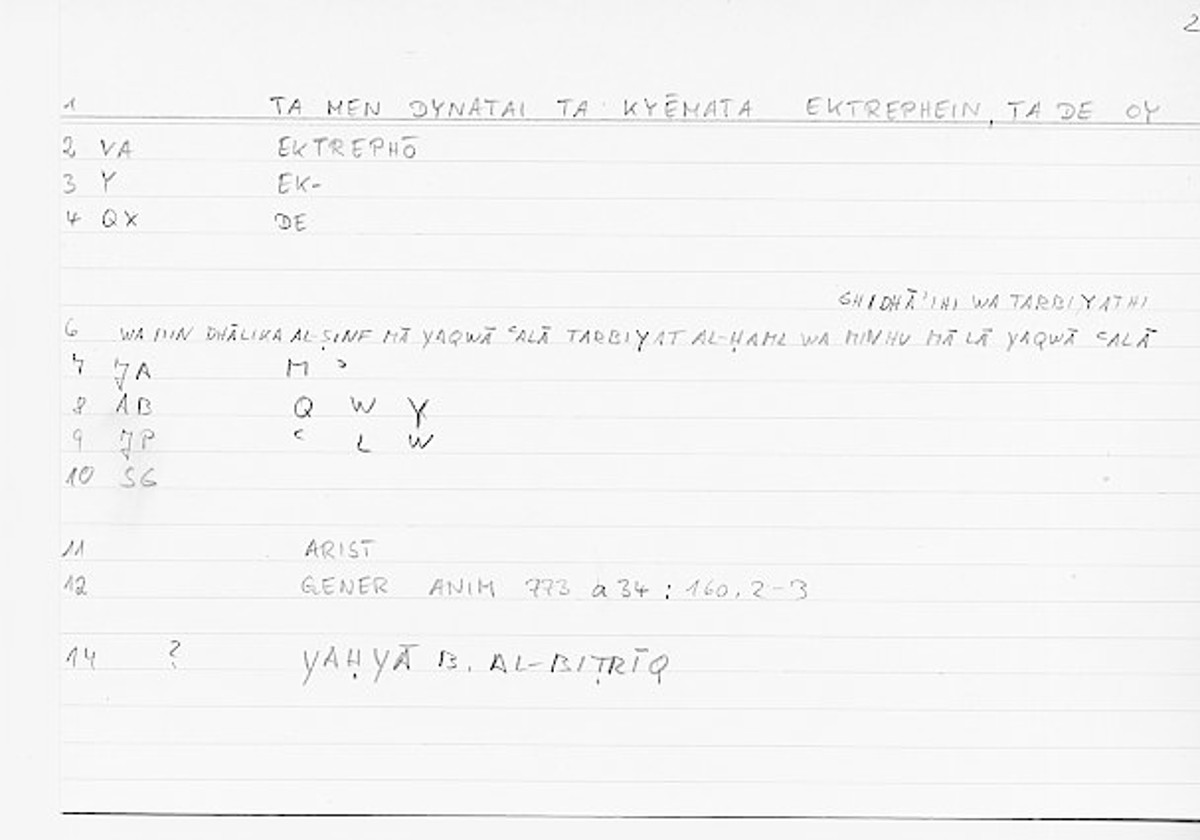 2
1 TA MEN DYNATAI TA KYĒMATA EKTREPHEIN, TA DE OY
2 VA EKTREPHŌ
3 Y EK-
4 QX DE
GHIDHĀʾIHI WA TARBIYATHI
6 WA MIN DHĀLIKA AL-ṢINF MĀ YAQWĀ ʿALĀ TARBIYAT AL-ḤAML WA MINHU MĀ LĀ YAQWĀ ʿALĀ
7 JA M ʾ
8 AB Q W Y
9 JP ʿ L W
10 SG
11 ARIST
12 GENER ANIM 773 a 34 : 160, 2-3
14 ? YAḤYĀ B. AL-BIṬRĪQ